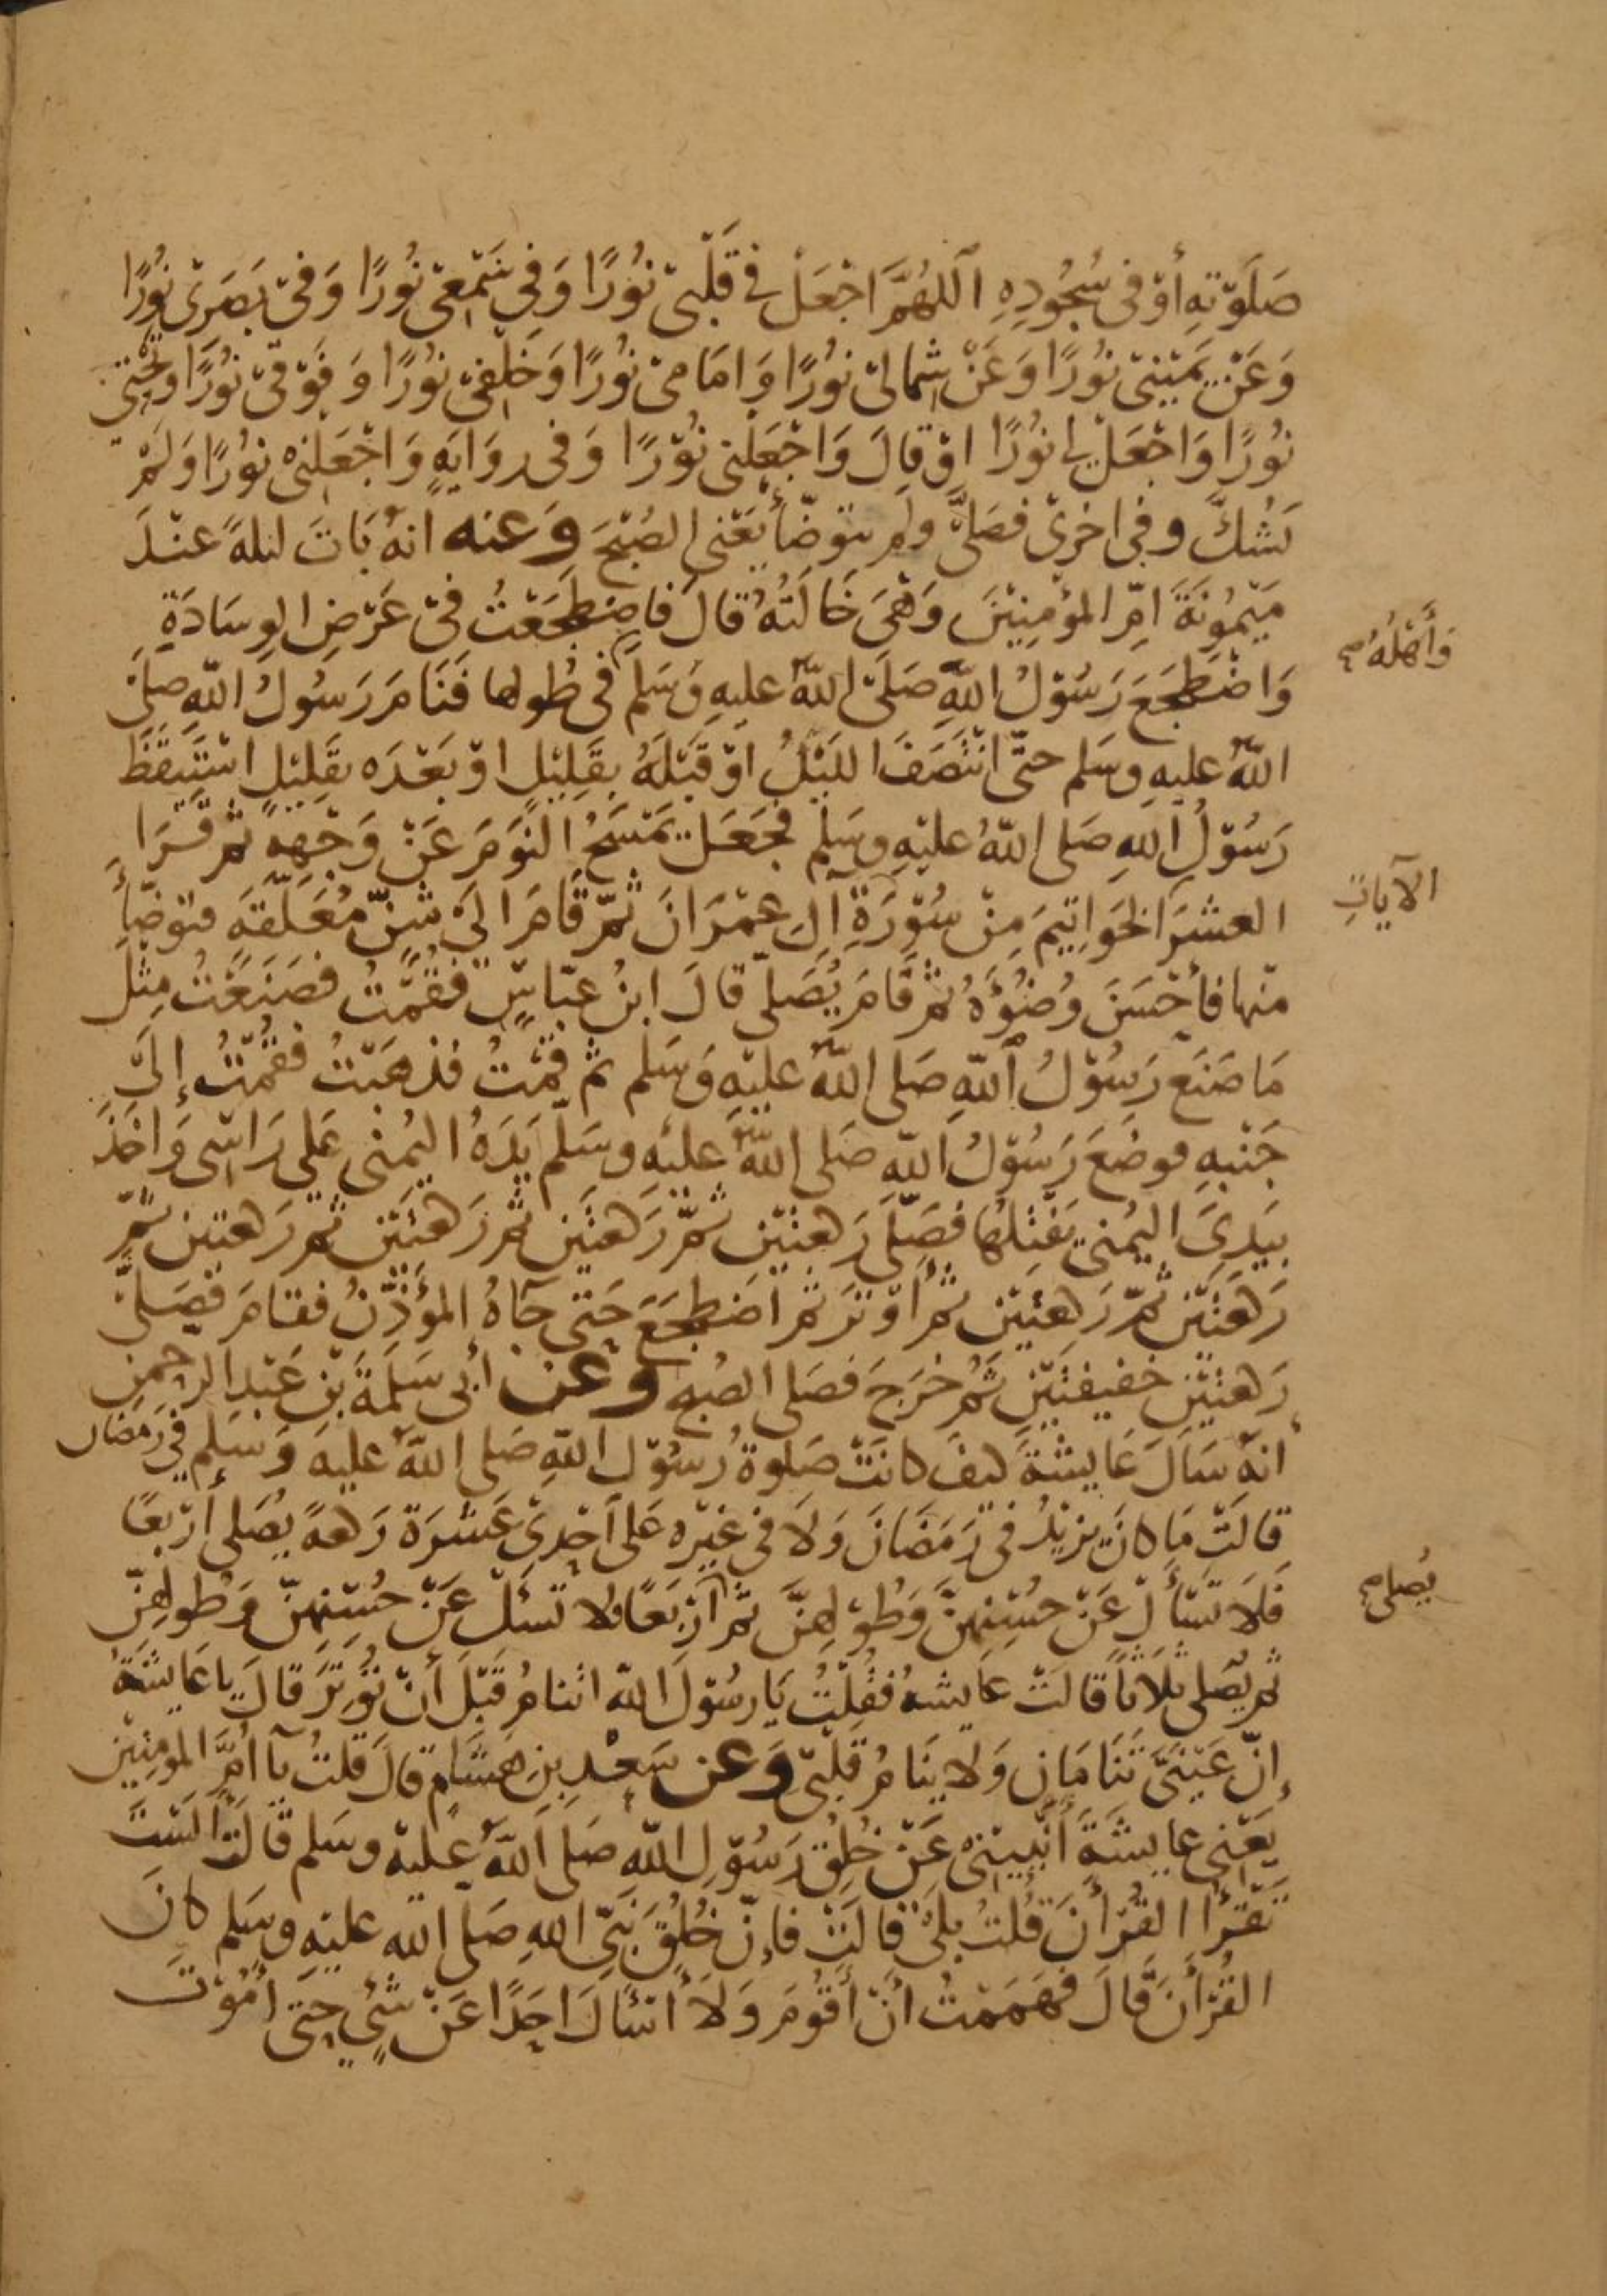 صَلَوٰتِهِ أَوْ فِى سُجُودِهِ اَللهُمَّ اجْعَلْ فِى قَلْبِىْ نُوْرًا وَفِى سَمْعِىْ نُوْرًا وَفِىْ بَصَرِىْ نُوْرًا
وَعَنْ يَمِيْنِىْ نُوْرًا وَعَنْ شِمَالِىْ نُوْرًا وَامَامِىْ نُوْرًا وَخَلْفِىْ نُوْرًا وَفَوْقِىْ نُوْرًا وَتَحْتِىْ
نُوْرًا وَاجْعَلْ لِى نُوْرًا اوْ قَالَ وَاجْعَلْنِى نُوْرًا وَفِى رِوَايَةٍ وَاجْعَلْنِىْ نُوْرًا وَلَمْ
يَشُكَّ وفِى اخْرىٰ فَصَلَّى ولم يتوضّأ يَعْنِى الصُبْحَ وَعنه انهُ بَاتَ ليلةً عنْدَ
مَيْمُونَةَ امِّ المؤْمِنِيْنَ وَهْىَ خَالَتُهُ قَالَ فاضطجَعْتُ فِىْ عَرْضِ الوِسَادَةِ
وَاضْطَجَعَ رَسُوْلُ اللهِ صَلَىّ اللهُ عليهِ وَسَلم فى طُولها فَنَامَ رَسُولُ اللهِ صلىَّ
اللهُ عليهِ وسَلم حتّى انْتَصَفَ اللَيْلُ اوْ قَبْلَهُ بقَلِيْلٍ اوْ بَعْدَه بقَلِيْلٍ اسْتَيقَظَ
رَسُوْلُ اللهِ صَلى اللهُ عليْهِ وسَلم فجَعَلَ يَمْسَحُ النَوْمَ عَنْ وَجْهِهِ ثمّ قَرَا
العشرَ الخَوَاتِيمَ مِنْ سُوْرَةِ آلِ عِمْرَانَ ثمّ قَامَ الَى شَنٍّ مُعَلّقَةٍ فتوضّأَ
منْها فأحْسَنَ وُضُوْءَهُ ثمّ قَامَ يُصَلّى قَالَ ابنُ عبّاسٍ فقُمْتُ فصَنَعْتُ مِثْلَ
مَا صَنَعَ رَسُوْلُ اللهِ صَلى اللهُ عليْهِ وَسَلم ثمّ قمْتُ فذهَبْتُ فقُمْتُ إلىَ
جَنْبِهِ فوضَعَ رَسُوْلُ اللهِ صَلى اللهُ عليْهِ وسَلم يَدَهُ اليُمْنى عَلى رَاسِى وَاخَذَ
بيَدِىَ اليُمْنى يَفْتِلُها فصَلّى رَكعتَيْن ثمّ رَكعتَيْن ثمّ رَكعتَيْن ثمّ رَكعتين ثمّ
رَكعَتَيْن ثمّ رَكعتَيْن ثمّ أوْتَرَ ثمّ اضطجَعَ حَتى جَآءهُ المؤَذِّنُ فقامَ فصَلىّ
رَكعتَيْن خفيفتَيْن ثمّ خَرَجَ فصَلى الصُبح وَعَن أبى سَلَمَةَ بْنِ عَبْدِ الرحمٰن
انهُ سَألَ عَايشةَ كيفَ كانَتْ صَلوةُ رسُوْلِ اللهِ صَلى اللهُ عليْهِ وَسَلم فِى رَمَضَان
قالَتْ مَا كانَ يزيْدُ فِى رَمَضَانَ وَلَا فِى غيْرِه عَلى احْدىٰ عَشرَةَ رَكعةً يُصَلى أرْبعًا
فَلَا تَسْأَلْ عَنْ حُسْنِهنَّ وَطُوْلِهِنَّ ثمّ أرْبَعًا فلا تَسْئَلْ عَنْ حُسْنِهنَّ وَطُولِهِنّ
ثمّ يُصَلى ثلَاثاً قَالَتْ عَايشةُ فقُلتُ يَا رسُوْلَ اللهِ اتنامُ قَبْلَ أنْ تُوْتِرَ قَالَ يا عَايشةُ
إنّ عَيْنَىَّ تَنَامَان وَلا يَنَامُ قَلْبِىْ وَعن سَعْدِ بنِ هِشَامٍ قالَ قلتُ يآ اُمَّ المومِنِيْن
يَعْنى عايشةَ أنْبِئِيْنِىْ عَنْ خُلُقِ رَسُوْلِ اللهِ صَلى اللهُ عليْهِ وسَلم قالَتْ ألَسْتَ
تَقْرَأُ القُرْأنَ قُلتُ بلىٰ قالَتْ فإنّ خُلُقَ نَبِىِّ اللهِ صَلى الله عليْهِ وسَلم كانَ
القُرْأنَ قَالَ فهَمَمْتُ أنْ أقُوْمَ وَلَا أسْئالَ احَدًا عَنْ شَىْءٍ حتى أمُوْتَ
وَأَهْلُهُ صح
الآياتِ
يُصلى صح